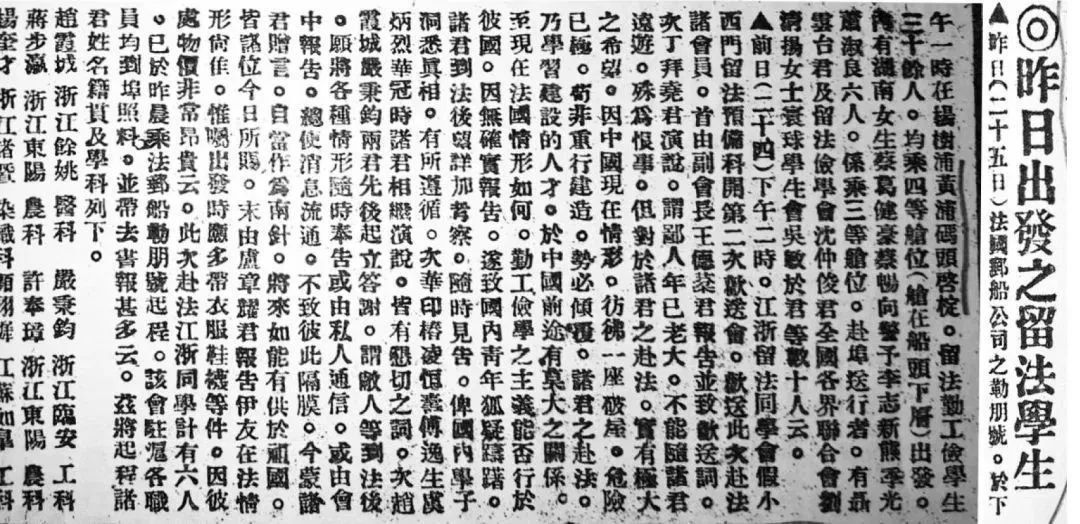 ◎昨日出發之留法學生
▲昨日(二十五日)法國郵船公司之勒朋號。於下
午一時在楊樹浦黃浦碼頭啓椗。留法勤工儉學生
三十餘人。均乘四等艙位(艙在船頭下層)出發。
內有湖南女生蔡葛健豪蔡暢向警予李志新熊季光
蕭淑良六人。係乘三等艙位。赴埠送行者。有聶
雲台君及留法儉學會沈仲俊君全國各界聯合會劉
清揚女士寰球學生會吳敏於君等數十人云。
▲前日(二十四)下午二時。江浙留法同學會假小
西門留法預備科開第二次歡送會。歡送此次赴法
諸會員。首由副會長王德棻君報告並致歡送詞。
次丁拜堯君演說。謂鄙人年已老大。不能隨諸君
遠遊。殊爲恨事。但對於諸君之赴法。實有極大
之希望。因中國現在情形。彷彿一座破屋。危險
已極。苟非重行建造。勢必傾覆。諸君之赴法。
乃學習建設的人才。於中國前途有莫大之關係。
至現在法國情形如何。勤工儉學之主義能否行於
彼國。因無確實報告。遂致國內青年狐疑躊躇。
諸君到法後望詳加考察。隨時見告。俾國內學子
洞悉眞相。有所遵循。次華印椿凌恒燾傅逸生虞
炳烈華冠時諸君相繼演說。皆有懇切之詞。次趙
霞城嚴秉鈞兩君先後起立答謝。謂敝人等到法後
。願將各種情形隨時奉告或由私人通信。或由會
中報告。總使消息流通。不致彼此隔膜。今蒙諸
君贈言。自當作爲南針。將來如能有供於祖國。
皆諸位今日所賜。末由盧章耀君報告伊友在法情
形尙佳。惟囑出發時應多帶衣服鞋襪等件。因彼
處物價非常昂貴云。此次赴法江浙同學計有六人
。已於昨晨乘法郵船勒朋號起程。該會駐滬各職
員均到埠照料。並帶去書報甚多云。茲將起程諸
君姓名籍貫及學科列下。
趙霞城 浙江餘姚 醫科 嚴秉鈞 浙江臨安 工科
蔣步瀛 浙江東陽 農科 許奉璋 浙江東陽 農科
楊奎才 浙江諸暨 染織科 江蘇如皐 工科